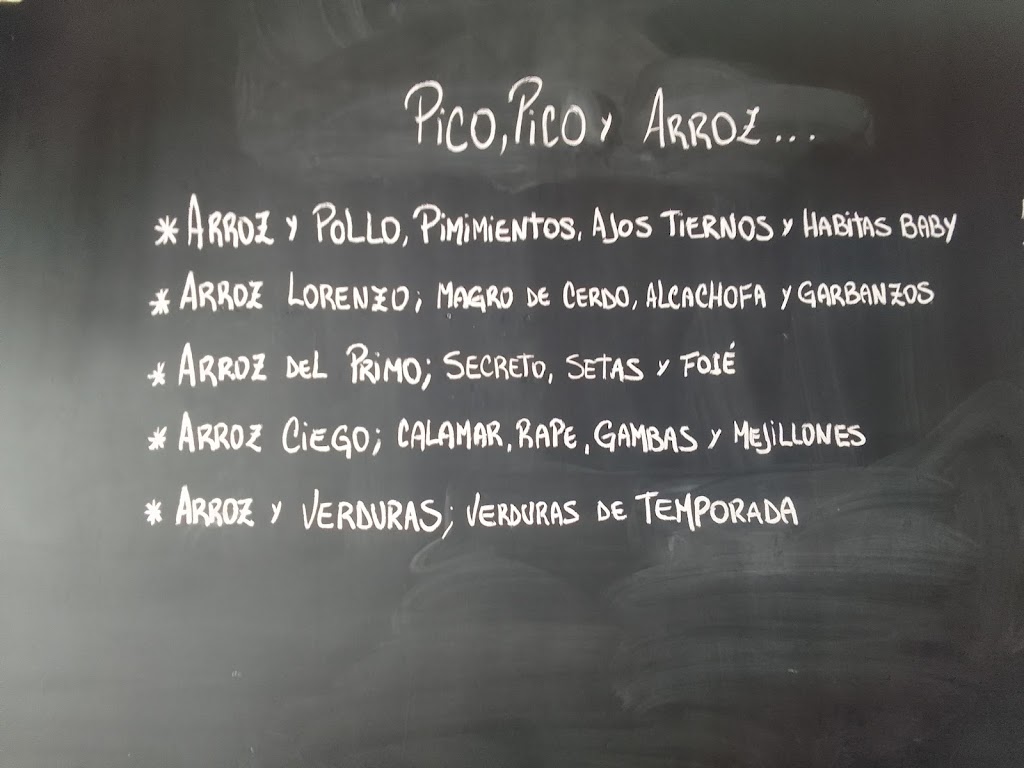 Pico, Pico y Arroz...
* Arroz y Pollo, Pimimientos, Ajos Tiernos y Habitas Baby
* Arroz Lorenzo; Magro de Cerdo, Alcachofa y Garbanzos
* Arroz del Primo; Secreto, Setas y Foié
* Arroz Ciego; Calamar, Rape, Gambas y Mejillones
* Arroz y Verduras; Verduras de Temporada